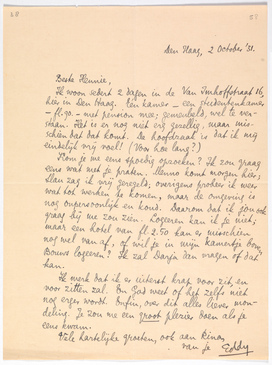 Den Haag, 2 October '31.
Beste Hennie,
Ik woon sedert 2 dagen in de Van Imhoffstraat 16,
hier in Den Haag. Een kamer – een studentenkamer
– fl. 90.– met pension mee, gemeubeld, wel te ver-
staan. Het is er nog niet erg gezellig, maar mis-
schien dat dat komt. De hoofdzaak is dat ik mij
eindelijk vrij voel! (Voor hoe lang?)
Kom je me eens spoedig opzoeken? Ik zou graag
eens wat met je praten. Menno komt morgen hier;
dan zag ik vrij geregeld; overigens probeer ik weer
wat tot werken te komen, maar de omgeving is
nog onpersoonlijk en koud. Daarom dat ik jou ook
graag bij me zou zien. Logeeren kan ik je niet;
maar een hotel van fl 2.50 kan er misschien
nog wel van af, of wil je in mijn kamertje bij
Bouws logeeren? Ik zal Darja dan vragen of dat
kan.
Ik merk dat ik er uiterst krap voor zit, en
voor zitten zal. En God weet of het zelfs niet
nog erger wordt. Enfin, over dit alles liever mon-
deling. Je zou me een groot plezier doen als je
eens kwam.
Vele hartelijke groeten, ook aan Rina,
van je Eddy